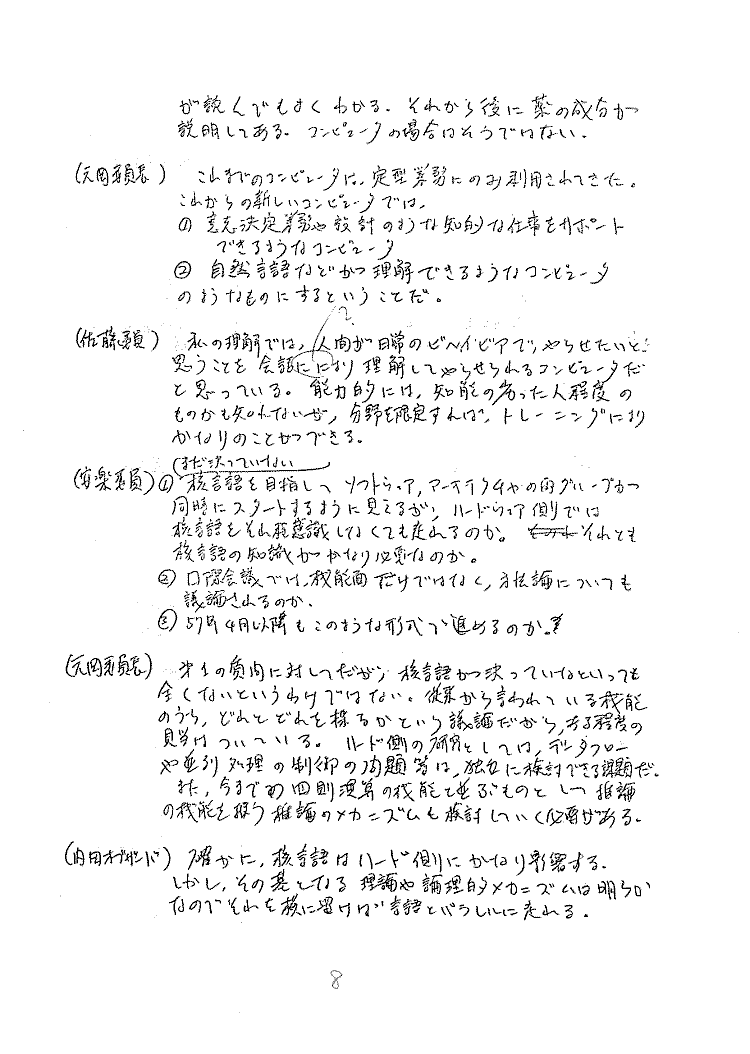 が読んでもよくわかる。それから後に薬の成分が
説明してある。コンピュータの場合はそうではない。
(元岡委員長) これまでのコンピュータは、定型業務にのみ利用されてきた。
これからの新しいコンピュータでは、
① 意志決定業務や設計のような知的な仕事をサポート
できるようなコンピュータ
② 自然言語などが理解できるようなコンピュータ
のようなものにするということだ。
?
(佐藤委員) 私の理解では、人間が日常のビヘイビアで、やらせたいと
思うことを会話により理解してやらせられるコンピュータだ
と思っている。能力的には、知能の劣った人程度の
ものかも知れないが、分野を限定すれば、トレーニングにより
かなりのことができる。
まだ決っていない
(安楽委員) ① 核言語を目指して ソフトウェア, アーキテクチャの両グループが
同時にスタートするように見えるが、ハードウェア側では
核言語をそれ程意識しなくても走れるのか。それとも
核言語の知識がかなり必要なのか。
② 国際会議では、機能面だけではなく、方法論についても
議論されるのか。
③ 57年4月以降もこのような形式で進めるのか。
(元岡委員長) 第1の質問に対してだが、核言語が決っていないといっても
全くないというわけではない。従来から言われている機能
のうち、どれとどれを採るかという議論だから、ある程度の
見当はついている。ハード側の研究としては、データフロー
や並列処理の制御の問題等は、独立に検討できる課題だ。
また、今までの四則演算の機能と並ぶものとして推論
の機能を扱う推論のメカニズムも検討していく必要がある。
(内田オブザーバ) 確かに、核言語はハード側にかなり影響する。
しかし、その基となる理論や論理的メカニズムは明らか
なのでそれを核に置けば言語とパラレルに走れる。
8